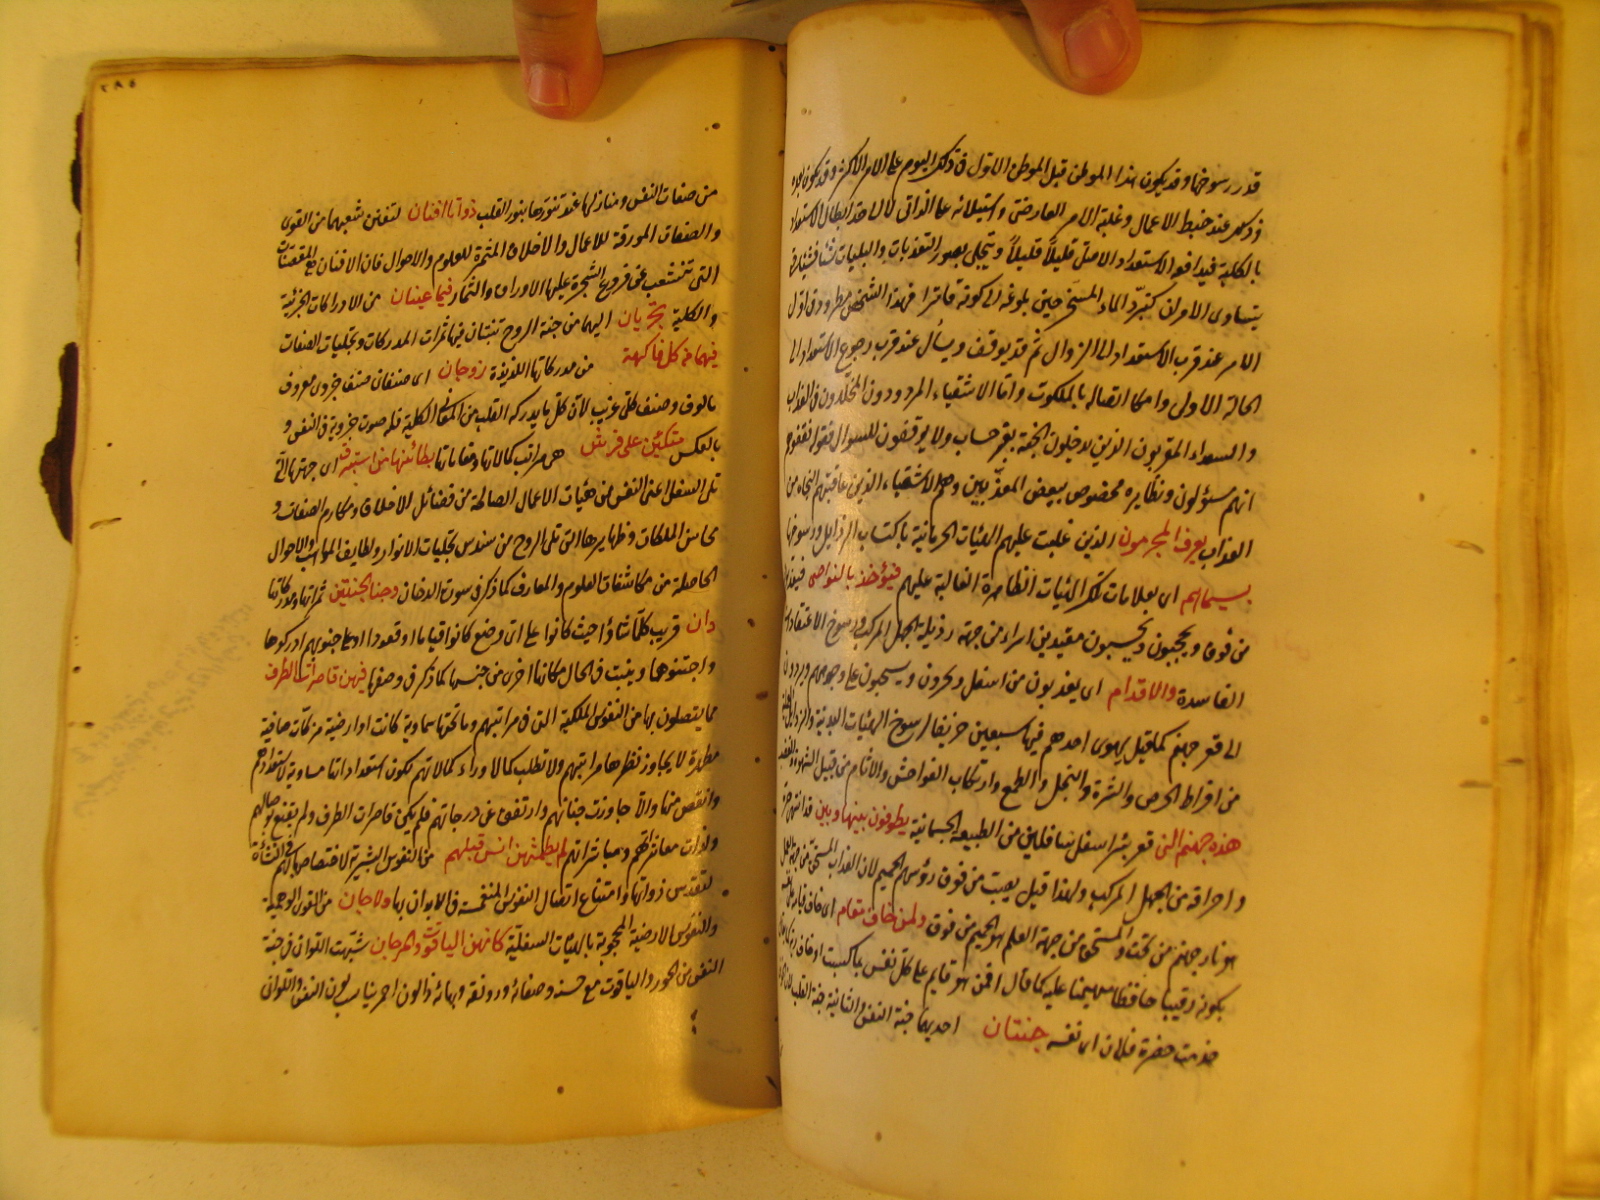 قدر رسوخها وقد يكون هذا الموطن قبل الموطن الاول في ذلك اليوم على الامر الاكثر وقد يكون بعده
وذلك عند حبط الاعمال وغلبة الامر العارضي واستيلائه على الذاتي لا الى حد ابطال الاستعداد
بالكلية فيدافعه الاستعداد الاصلي قليلاً قليلاً ويتجلى بصور التعذيبات والبليات شيئا فشيئا حتى
يتساوى الامران كتبرّد الماء المسخن حين بلوغه الى كونه فاترا فهذا الشخص مطرود في اول
الامر عند قرب الاستعداد الى الزوال ثم قد يوقف ويسأل عند قرب رجوع الاستعداد الى
الحالة الاولى وامكان اتصاله بالملكوت واما الاشقياء المردودون المخلّدون في العذاب
والسعداء المقربون الذين يدخلون الجنة بغير حساب ولا يوقفون للسوال فقوله وقفوهم
انهم مسؤلون ونظايره مخصوص ببعض المعذّبين وهم الاشقياء الذين عاقبتهم النجاة من
العذاب يعرف المجرمون الذين غلبت عليهم الهيئات الجرمانية باكتساب الرذايل ورسوخها
بسيماهم اى بعلامات تلك الهيئات الظاهرة الغالبة عليهم فيؤخذ بالنواصى فيعذبون
من فوق ويحجبون ويحبسون مقيدين اسراء من جهة رذيلة الجهل المركب ورسوخ الاعتقادات
الفاسدة والاقدام اى يعذبون من اسفل ويجرون ويسحبون على وجوههم ويردون
الى قعر جهنم كما قيل يهوى احدهم فيها سبعين خريفا لرسوخ الهيئات البدنية والرذايل العملية
من افراط الحرص والشره والبخل والطمع وارتكاب الفواحش والآثام من قبيل الشهوة والغضب
هذه جهنم التى قعر بئر اسفل سافلين من الطبيعة الجسمانية يطوفون بينها وبين قد انتهى حره
واحراقه من الجهل المركب ولهذا قيل يصب من فوق رؤسهم الحميم لان العذاب المستحق من جهة العمل
هو نار جهنم من تحت والمستحق من جهة العلم هو الحميم من فوق ولمن خاف مقام اى خاف قيامه على نفسه
بكونه رقيبا حافظا مهيمنا عليه كما قال افمن هو قايم على كل نفس بما كسبت او خاف ربه كما يقال
خدمت حضرة فلان اى نفسه جنتان احديهما جنة النفس والثانية جنة القلب لان الخوف
٢٨٥
من صفات النفس ومنازلها عند تنورها بنور القلب ذواتا افنان لتفنن شعبهما من القوى
والصفات المورقة للاعمال والاخلاق المثمرة للعلوم والاحوال فان الافنان هى المغصنات
التى تتشعب عن فروع الشجرة عليها الاوراق والثمار فيهما عينان من الادراكات الجزئية
والكلية تجريان اليهما من جنة الروح تنبتان فيهما ثمرات المدركات وتجليات الصفات
فيهما من كل فاكهة من مدركاتها اللذيذة زوجان اى صنفان صنف جزوى معروف
مالوف وصنف كلى غريب لان كل ما يدركه القلب من المعانى الكلية فله صورت جزوية في النفس و
بالعكس متكئين على فرش هى مراتب كمالاتها ومقاماتها بطائنها من استبرق اى جهتها التى
تلى السفل اعنى النفس من هيئات الاعمال الصالحة من فضائل الاخلاق ومكارم الصفات و
محاسن الملكات وظهايرها التى تلى الروح من سندس تجليات الانوار ولطايف المواهب والاحوال
الحاصلة من مكاشفات العلوم والمعارف كما ذكر في سورة الدخان وجنا الجنتين ثمراتها ومدركاتها
دان قريب كلما شاؤا حيث كانوا على اى وضع كانوا قياما او قعودا او على جنوبهم ادركوها
واجتنوها وينبت في الحال مكانها اخرى من جنسها كما ذكر في وصفها فيهن قاصرات الطرف
مما يتصلون بها من النفوس الملكية التى في مراتبهم وما تحتها سماوية كانت او ارضية مزكّات صافية
مطهرة لا يجاوز نظرها مراتبهم ولا تطلب كمالا وراء كمالاتهم لكون استعداداتها مساوية لاستعداداتهم
وانقص منها والا جاوزت جناتهم وارتفعت عن درجاتهم فلم يكن قاصرات الطرف ولم يقنع بوصالهم
ولذات معاشرتهم ومباشراتهم لم يطمثهن انس قبلهم من النفوس البشرية لاختصاصها بهم في النشأة
لتقدس ذواتها وامتناع اتصال النفوس المنغمسة في الابدان بها ولا جان من القوى الوهمية
والنفوس الارضية المحجوبة بالهيئات السفلية كانهن الياقوت والمرجان شبهت اللواتى في جنة
النفس من الحور والياقوت مع حسنه وصفائه ورونقه وبهائه ذا لون احمر يناسب لون النفس واللواتى